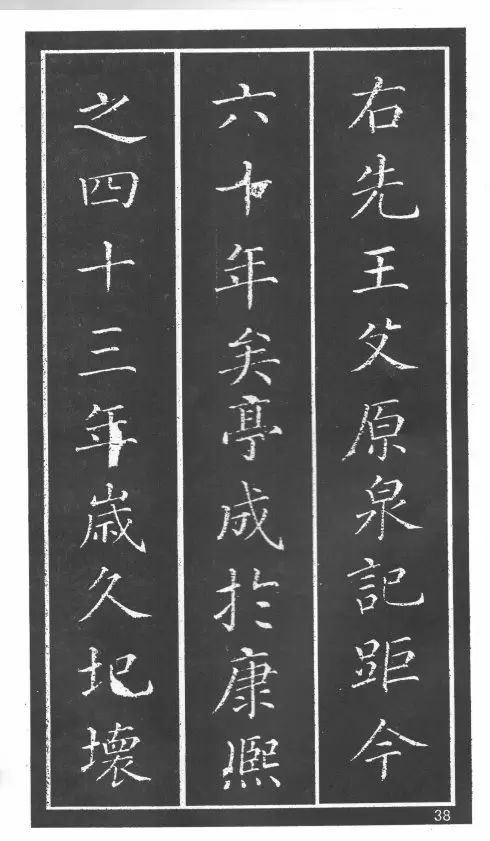 右先王父原泉記距今
六十年矣亭成於康熈
之四十三年歳久圮壞
38